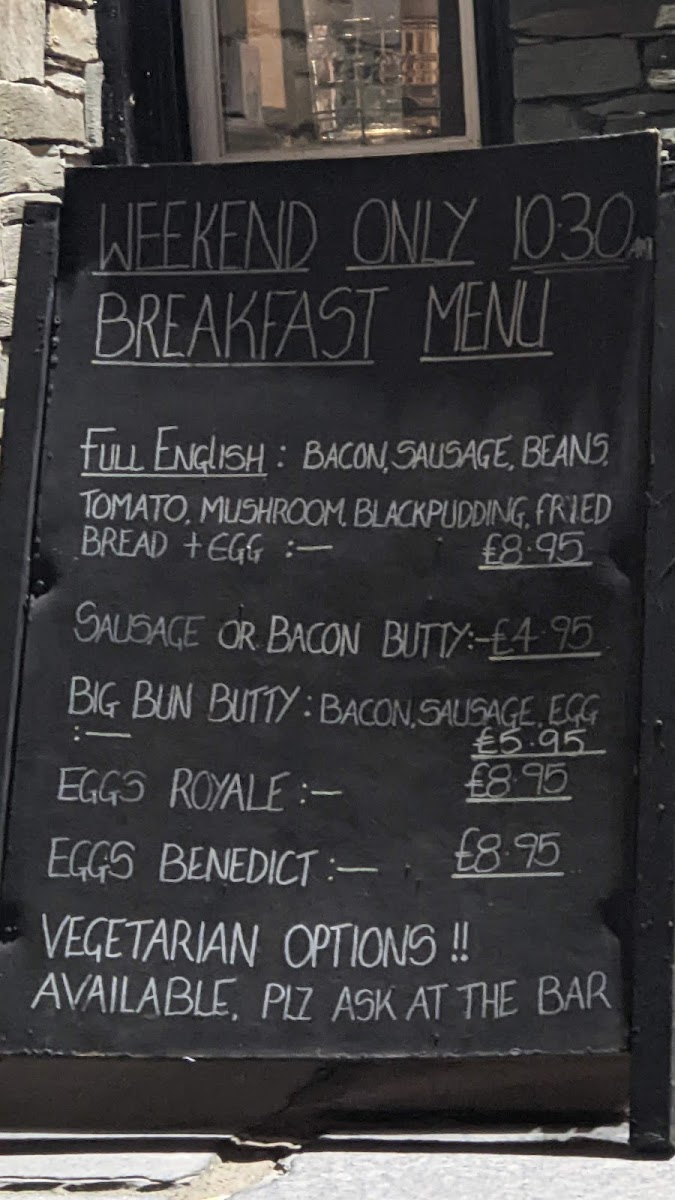 WEEKEND ONLY 10·30AM
BREAKFAST MENU
FULL ENGLISH : BACON, SAUSAGE, BEANS,
TOMATO, MUSHROOM, BLACKPUDDING, FRIED
BREAD + EGG :— £8·95
SAUSAGE OR BACON BUTTY:-£4·95
BIG BUN BUTTY : BACON, SAUSAGE, EGG
:— £5·95
EGGS ROYALE :— £8·95
EGGS BENEDICT :— £8·95
VEGETARIAN OPTIONS !!
AVAILABLE, PLZ ASK AT THE BAR